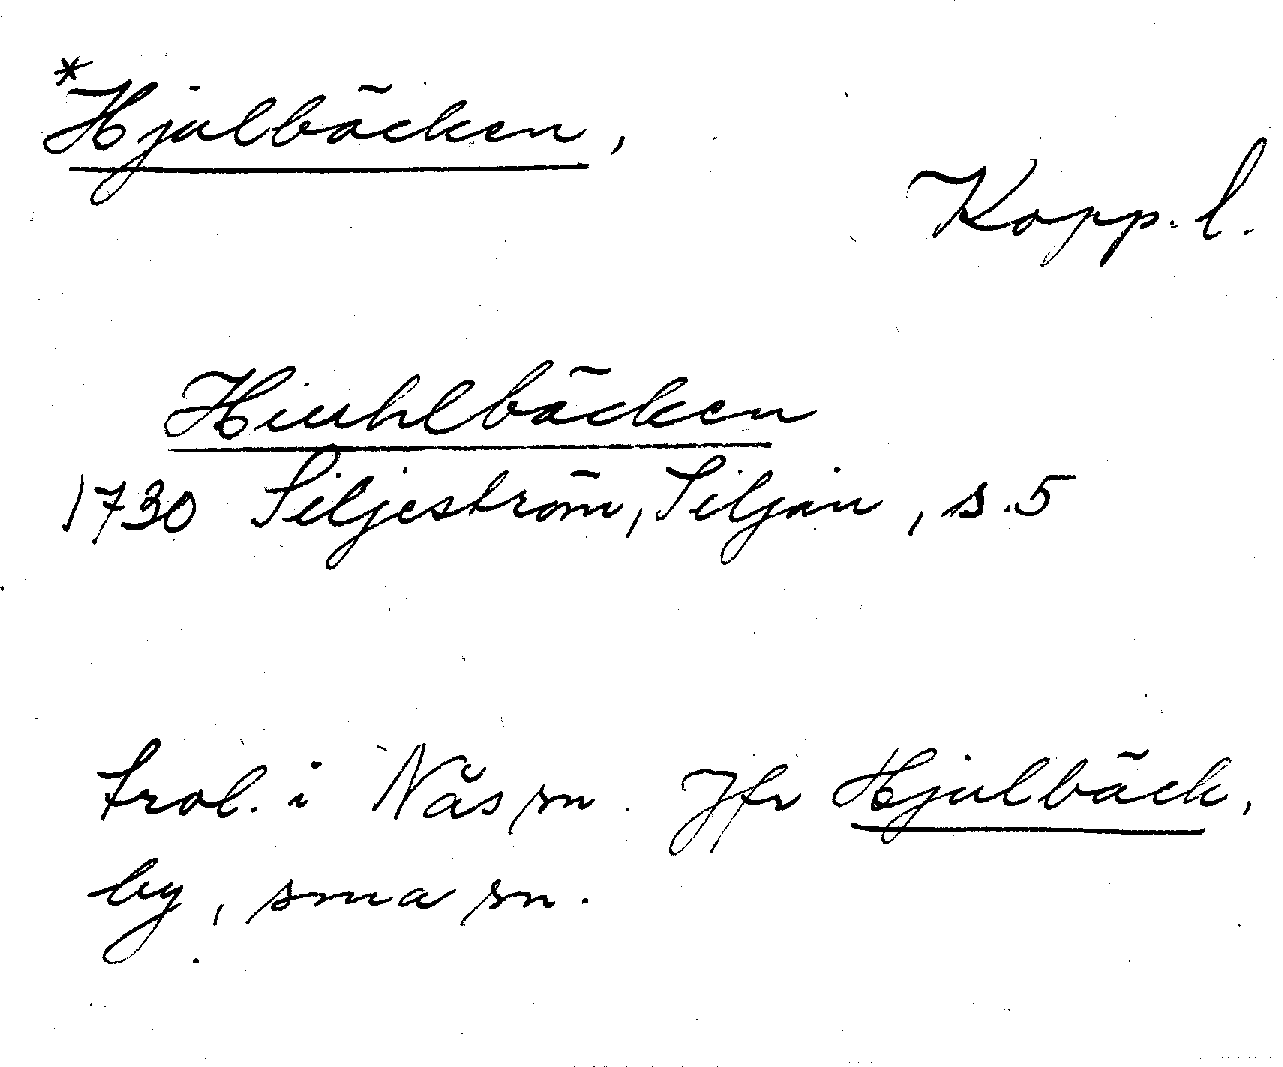 *Hjulbäcken,
Kopp. l.
Hiuhlbäcken
1730 Siljeström, Siljan, s. 5
trol. i Nås sn. Jfr Hjulbäck,
by, sma sn.